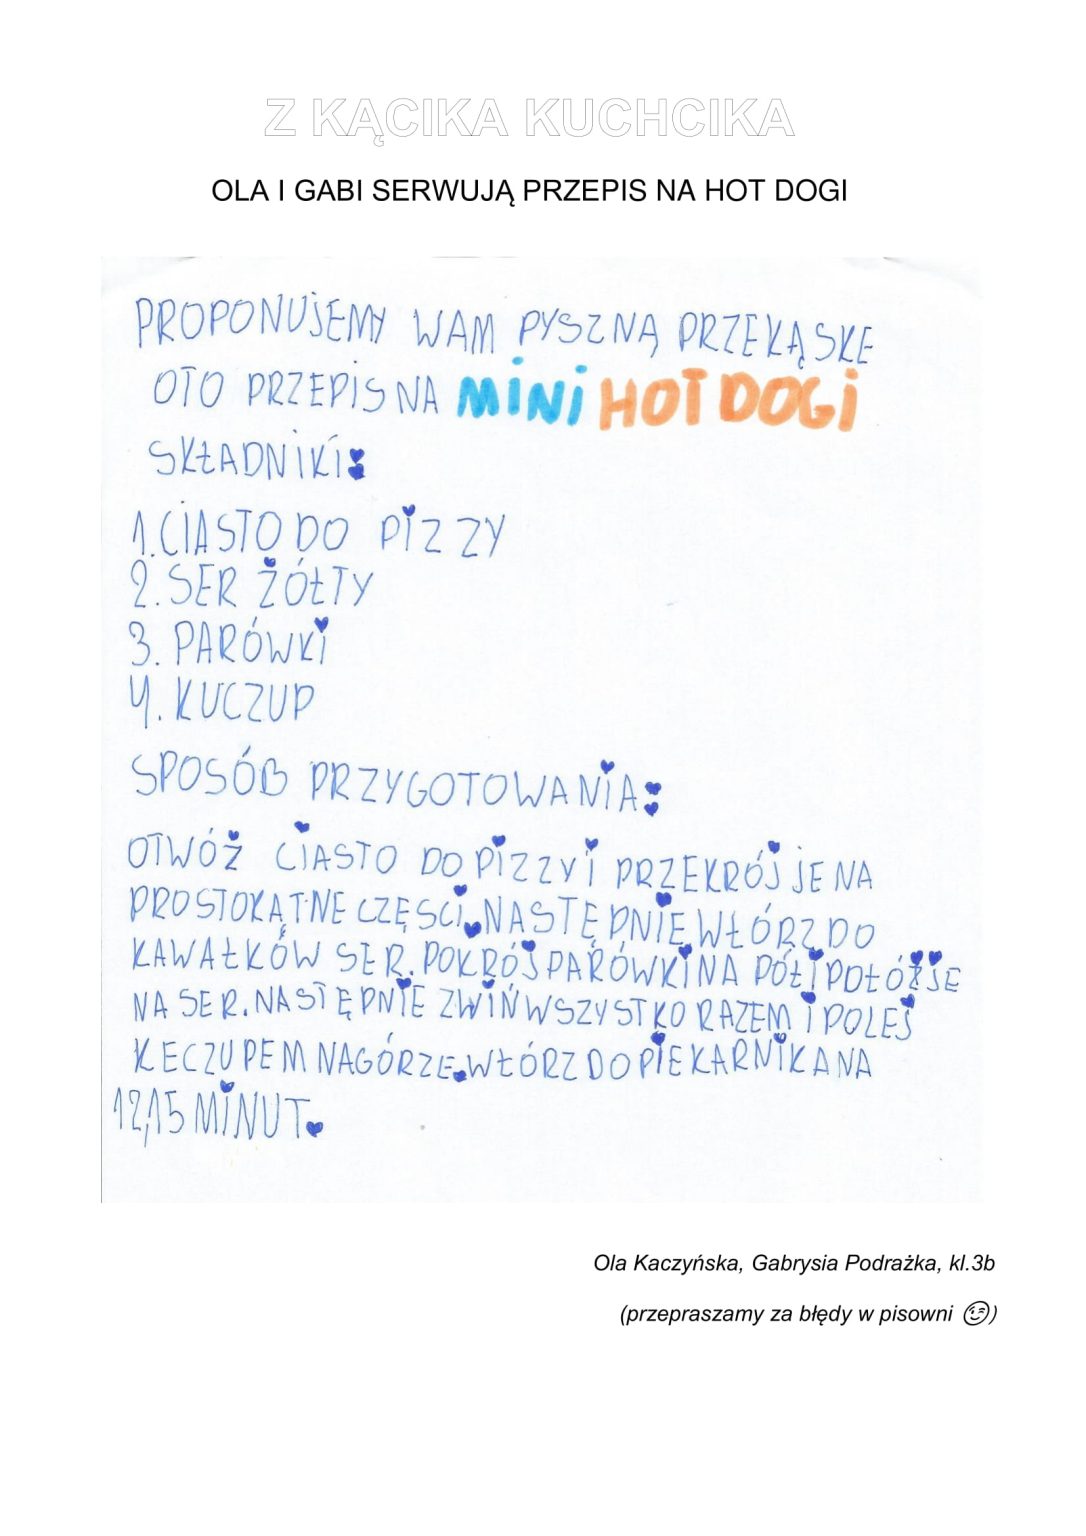 Z KĄCIKA KUCHCIKA
OLA I GABI SERWUJĄ PRZEPIS NA HOT DOGI
PROPONUJEMY WAM PYSZNĄ PRZEKĄSKE
OTO PRZEPIS NA MINI HOT DOGI
SKŁADNIKI:
1. CIASTO DO PIZZY
2. SER ŻÓŁTY
3. PARÓWKI
4. KUCZUP
SPOSÓB PRZYGOTOWANIA:
OTWÓŻ CIASTO DO PIZZY I PRZEKRÓJ JE NA
PROSTOKĄTNE CZĘSCI. NASTĘPNIE WŁÓRZ DO
KAWAŁKÓW SER. POKRÓJ PARÓWKI NA PÓŁ I POŁÓŻ JE
NA SER. NASTĘPNIE ZWIŃ WSZYSTKO RAZEM I POLEJ
KECZUPEM NAGÓRZE. WŁÓRZ DO PIEKARNIKA NA
12,15 MINUT.
Ola Kaczyńska, Gabrysia Podrażka, kl.3b
(przepraszamy za błędy w pisowni 😉)